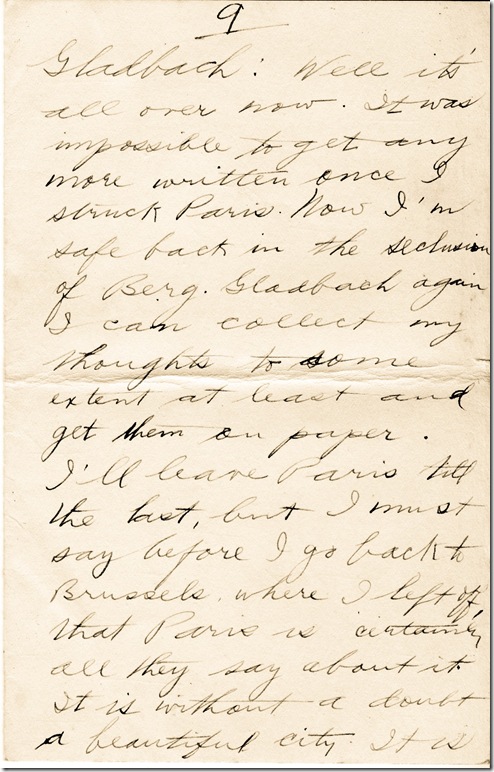 9
Gladbach: Well it's
all over now. It was
impossible to get any
more written once I
struck Paris. Now I'm
safe back in the seclusion
of Berg. Gladbach again
I can collect my
thoughts to some
extent at least and
get them on paper.
I'll leave Paris till
the last, but I must
say before I go back to
Brussels where I left off,
that Paris is certainly
all they say about it.
It is without a doubt
a beautiful city. It is